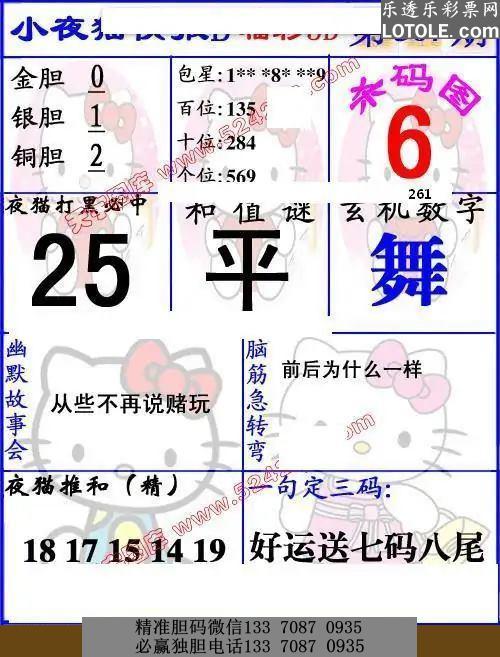 乐透乐彩票网
LOTOLE.COM
小夜猫
金胆 0
银胆 1
铜胆 2
包星:1** *8* **9
百位:135
十位:284
个位:569
码图
6
261
夜猫打黑必中
25
和值谜
平
玄机数字
舞
幽默故事会
从些不再说赌玩
脑筋急转弯
前后为什么一样
夜猫推和（精）
18 17 15 14 19
一句定三码:
好运送七码八尾
精准胆码微信133 7087 0935
必赢独胆电话133 7087 0935